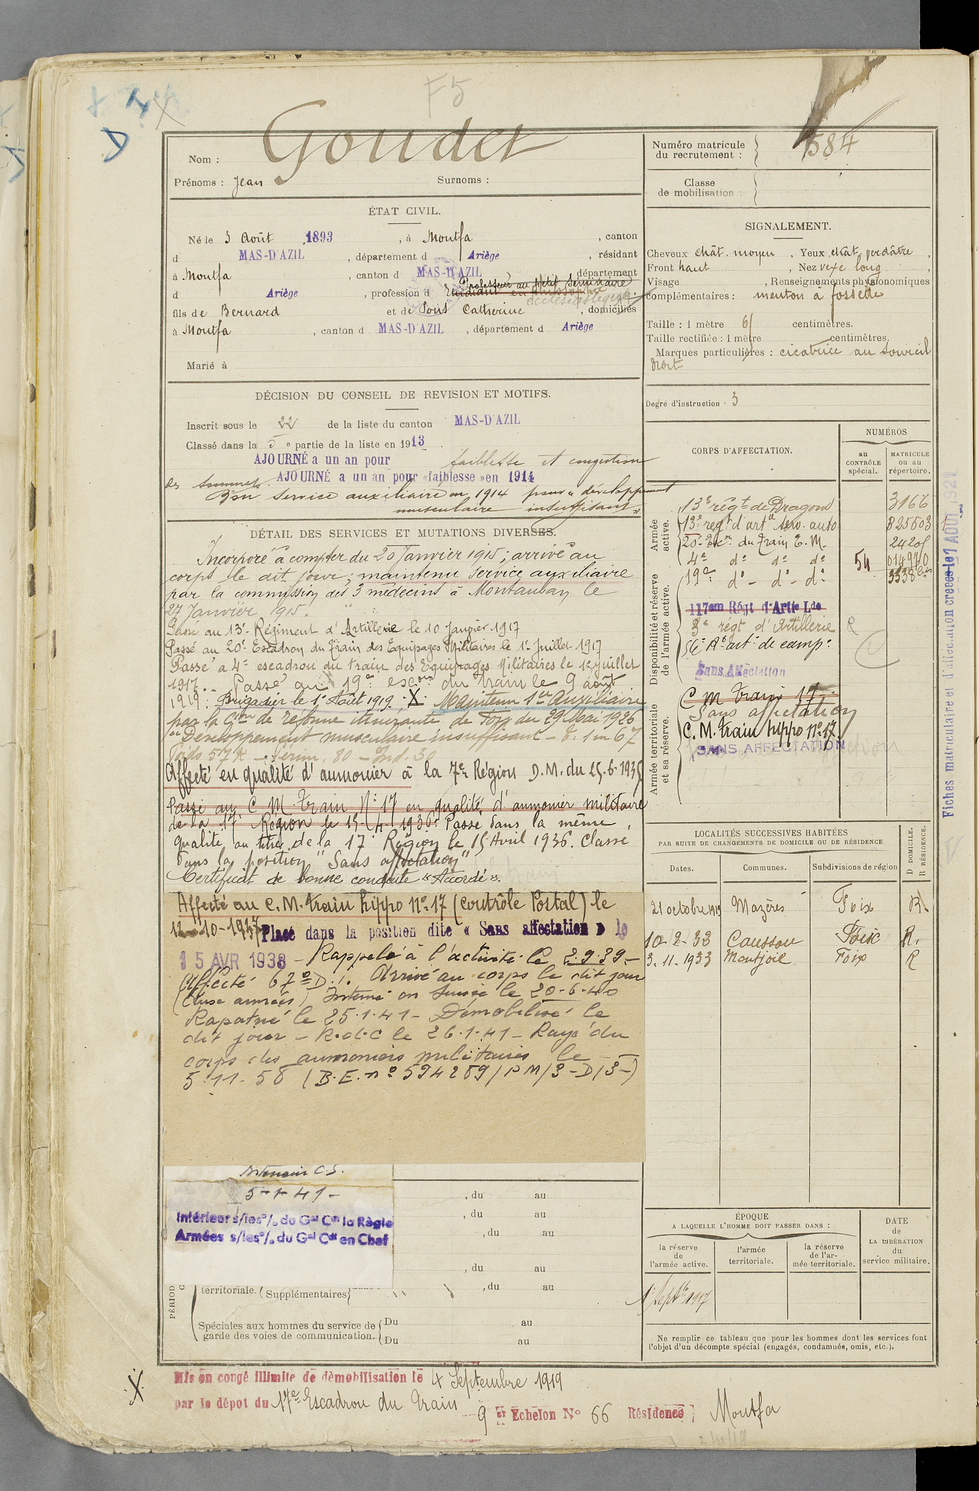 F5
Nom : Goudet
Prénoms : Jean Surnoms :
Numéro matricule du recrutement : 584
Classe de mobilisation :
ÉTAT CIVIL.
Né le 3 Août 1893, à Montfa, canton
d MAS-D'AZIL, département d Ariège, résidant
à Montfa, canton d MAS-D'AZIL département
d Ariège, profession d Etudiant en philosophie
Professeur au Petit Séminaire
ecclésiastique
fils de Bernard et de Pons Catherine, domiciliés
à Montfa, canton d MAS-D'AZIL, département d Ariège
Marié à
SIGNALEMENT.
Cheveux chât. moyen. Yeux chât. verdâtre,
Front haut, Nez vexe long,
Visage, Renseignements physionomiques
complémentaires : menton à fossette
Taille : 1 mètre 61 centimètres.
Taille rectifiée : 1 mètre centimètres.
Marques particulières : cicatrice au sourcil
droit
Degré d'instruction : 3
DÉCISION DU CONSEIL DE REVISION ET MOTIFS.
Inscrit sous le 22 de la liste du canton MAS-D'AZIL
Classé dans la 5e partie de la liste en 1913
AJOURNÉ a un an pour faiblesse et congestion
des sommets AJOURNÉ a un an pour « faiblesse » en 1914
Bon service auxiliaire en 1914 pour « développement
musculaire insuffisant »
DÉTAIL DES SERVICES ET MUTATIONS DIVERSES.
Incorporé à compter du 20 Janvier 1915, arrivé au
corps le dit jour, maintenu service auxiliaire
par la commission des 3 médecins à Montauban le
27 Janvier 1915.
Passé au 13e Régiment d'Artillerie le 10 Janvier 1917
Passé au 20e Escadron du Train des Equipages Militaires le 1er Juillet 1917
Passé au 4e escadron du train des Equipages Militaires le 12 juillet
1917. Passé au 19e escon du train le 9 août
1919. Brigadier le 1er Août 1919. X. Maintenu Sce Auxiliaire
par la Con de réforme itinérante de Foix du 29 Mai 1926
"Développement musculaire insuffisant – T. 1m 67
Poids 57 k – Périm. 80 – Ind. 30
Affecté en qualité d'aumonier à la 7e Région D.M. du 25.6.1935
Passé au C M Train N° 17 en qualité d'aumonier militaire
de la 17e Région le 15-4-1936. Passé dans la même
qualité au titre de la 17e Région le 15 Avril 1936. Classé
dans la position "Sans affectation"
Certificat de bonne conduite « Accordé ».
Affecté au C.M. train hippo n° 17 (contrôle Postal) le
12-10-1937 Placé dans la position dite « Sans affectation » le
15 AVR 1938 – Rappelé à l'activité le 2.9.39 –
Affecté 67e D.I. Arrivé au corps le dit jour
(Aux armées) Interné en Suisse le 20-6-40
Rapatrié le 25-1-41 – Démobilisé le
dit jour – R.d.C le 26.1.41 – Rayé du
corps des aumoniers militaires le
5-11-58 (B.E. n° 594289/PM/3-D/3-)
Intérieur C.S.
5-1-41-
Intérieur s/les o/. du Gal Ct la Régio
Armées s/les o/. du Gal Ct en Chef
, du au
, du au
, du au
, du au
territoriale. (Supplémentaires) , du au
Spéciales aux hommes du service de garde des voies de communication. Du au
Du au
CORPS D'AFFECTATION.
NUMÉROS
au CONTRÔLE spécial.
MATRICULE ou au répertoire.
Armée active.
13e régt de Dragons 3166
13e régt d'arte serv. auto 825603
20e Escn du Train E. M. 2420
4e do do do 54
19e do – do – do
Disponibilité et réserve de l'armée active.
117eme Régt d'Artie Lde
3e régt d'Artillerie
56e Rt art de camp:
Sans Affectation
Armée territoriale et sa réserve.
C M train 17.
Sans affectation
C. M. train hippo n° 17
SANS AFFECTATION
LOCALITÉS SUCCESSIVES HABITÉES
PAR SUITE DE CHANGEMENTS DE DOMICILE OU DE RÉSIDENCE
Dates. Communes. Subdivisions de région D DOMICILE. R RÉSIDENCE.
21 octobre 1919 Mazères Foix R.
10-2-33 Caussou Foix R.
3.11-1933 Montjoie Foix R
ÉPOQUE
A LAQUELLE L'HOMME DOIT PASSER DANS :
la réserve de l'armée active.
l'armée territoriale.
la réserve de l'armée territoriale.
DATE de LA LIBÉRATION du service militaire.
1er Septbre 1917
Ne remplir ce tableau que pour les hommes dont les services font
l'objet d'un décompte spécial (engagés, condamnés, omis, etc.).
Fiches matriculaire et d'affectation créées le 7 AOUT 1921
X. Mis en congé illimité de démobilisation le 4 Septembre 1919
par le dépot du 17e Escadron du Train
9 Echelon N° 66 Résidence Montfa